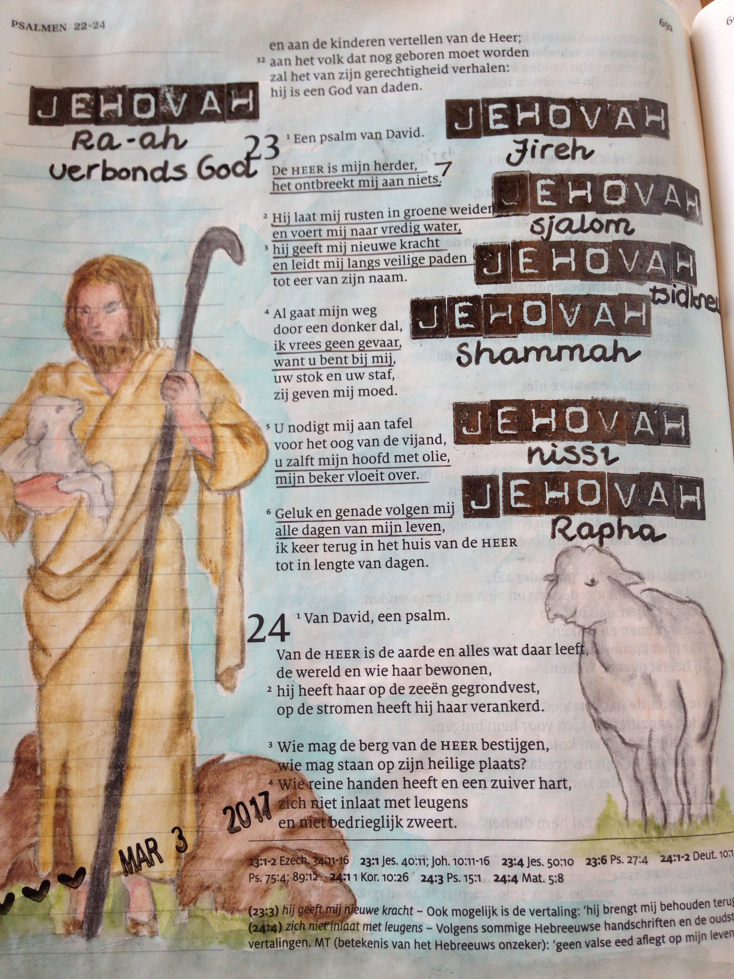 PSALMEN 22-24
692
en aan de kinderen vertellen van de Heer;
32 aan het volk dat nog geboren moet worden
zal het van zijn gerechtigheid verhalen:
hij is een God van daden.
JEHOVAH
Ra-ah
verbonds God
23
1 Een psalm van David.
De HEER is mijn herder, 7
het ontbreekt mij aan niets.
2 Hij laat mij rusten in groene weiden
en voert mij naar vredig water,
3 hij geeft mij nieuwe kracht
en leidt mij langs veilige paden
tot eer van zijn naam.
4 Al gaat mijn weg
door een donker dal,
ik vrees geen gevaar,
want u bent bij mij,
uw stok en uw staf,
zij geven mij moed.
5 U nodigt mij aan tafel
voor het oog van de vijand,
u zalft mijn hoofd met olie,
mijn beker vloeit over.
6 Geluk en genade volgen mij
alle dagen van mijn leven,
ik keer terug in het huis van de HEER
tot in lengte van dagen.
JEHOVAH
Jireh
JEHOVAH
sjalom
JEHOVAH
JEHOVAH
Shammah
JEHOVAH
nissi
JEHOVAH
Rapha
24
1 Van David, een psalm.
Van de HEER is de aarde en alles wat daar leeft,
de wereld en wie haar bewonen,
2 hij heeft haar op de zeeën gegrondvest,
op de stromen heeft hij haar verankerd.
3 Wie mag de berg van de HEER bestijgen,
wie mag staan op zijn heilige plaats?
4 Wie reine handen heeft en een zuiver hart,
zich niet inlaat met leugens
en niet bedrieglijk zweert.
MAR 3 2017
23:1-2 Ezech. 34:11-16 23:1 Jes. 40:11; Joh. 10:11-16 23:4 Jes. 50:10 23:6 Ps. 27:4 24:1-2 Deut.
Ps. 75:4; 89:12 24:1 1 Kor. 10:26 24:3 Ps. 15:1 24:4 Mat. 5:8
(23:3) hij geeft mij nieuwe kracht – Ook mogelijk is de vertaling: 'hij brengt mij behouden
(24:4) zich niet inlaat met leugens – Volgens sommige Hebreeuwse handschriften en de
vertalingen. MT (betekenis van het Hebreeuws onzeker): 'geen valse eed aflegt op mijn